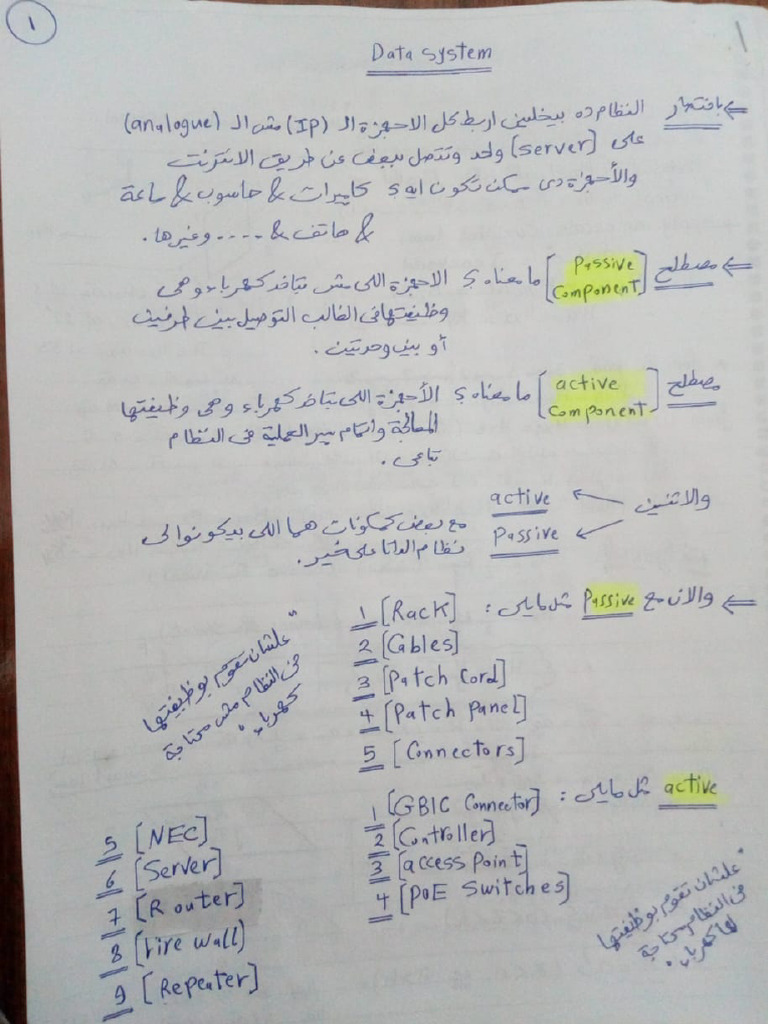 1
Data system
⇐ باختصار النظام ده بيخليني اربط كل الاجهزة الـ (IP) مش الـ (analogue)
على (server) واحد وتتصل ببعض عن طريق الانترنت
والأجهزة دى ممكن تكون ايه؟ كاميرات & حاسوب & ساعة
& هاتف & .... وغيرها.
⇐ مصطلح [Passive Component] ما معناه؟ الاجهزة اللى مش بتاخد كهرباء وهى
وظيفتها فى الغالب التوصيل بين طرفين
أو بين وحدتين.
مصطلح [active Component] ما معناه؟ الأجهزة اللى بتاخد كهرباء وهى وظيفتها
المعالجة واتمام سير العملية فى النظام
بتاعى.
والاتنين active
Passive مع بعض كمكونات هما اللى بيكونوالى
نظام الداتا على خير.
⇐ والان مع Passive مثل مايلى:
1 [Rack]
2 [Cables]
3 [Patch Cord]
4 [Patch Panel]
5 [Connectors]
"علشان تقوم بوظيفتها
فى النظام مش محتاجة
كهرباء"
active مثل مايلى:
1 [GBIC Connector]
2 [Controller]
3 [access Point]
4 [PoE Switches]
5 [NEC]
6 [Server]
7 [Router]
8 [Fire wall]
9 [Repeater]
"علشان تقوم بوظيفتها
فى النظام محتاجة
لها كهرباء"